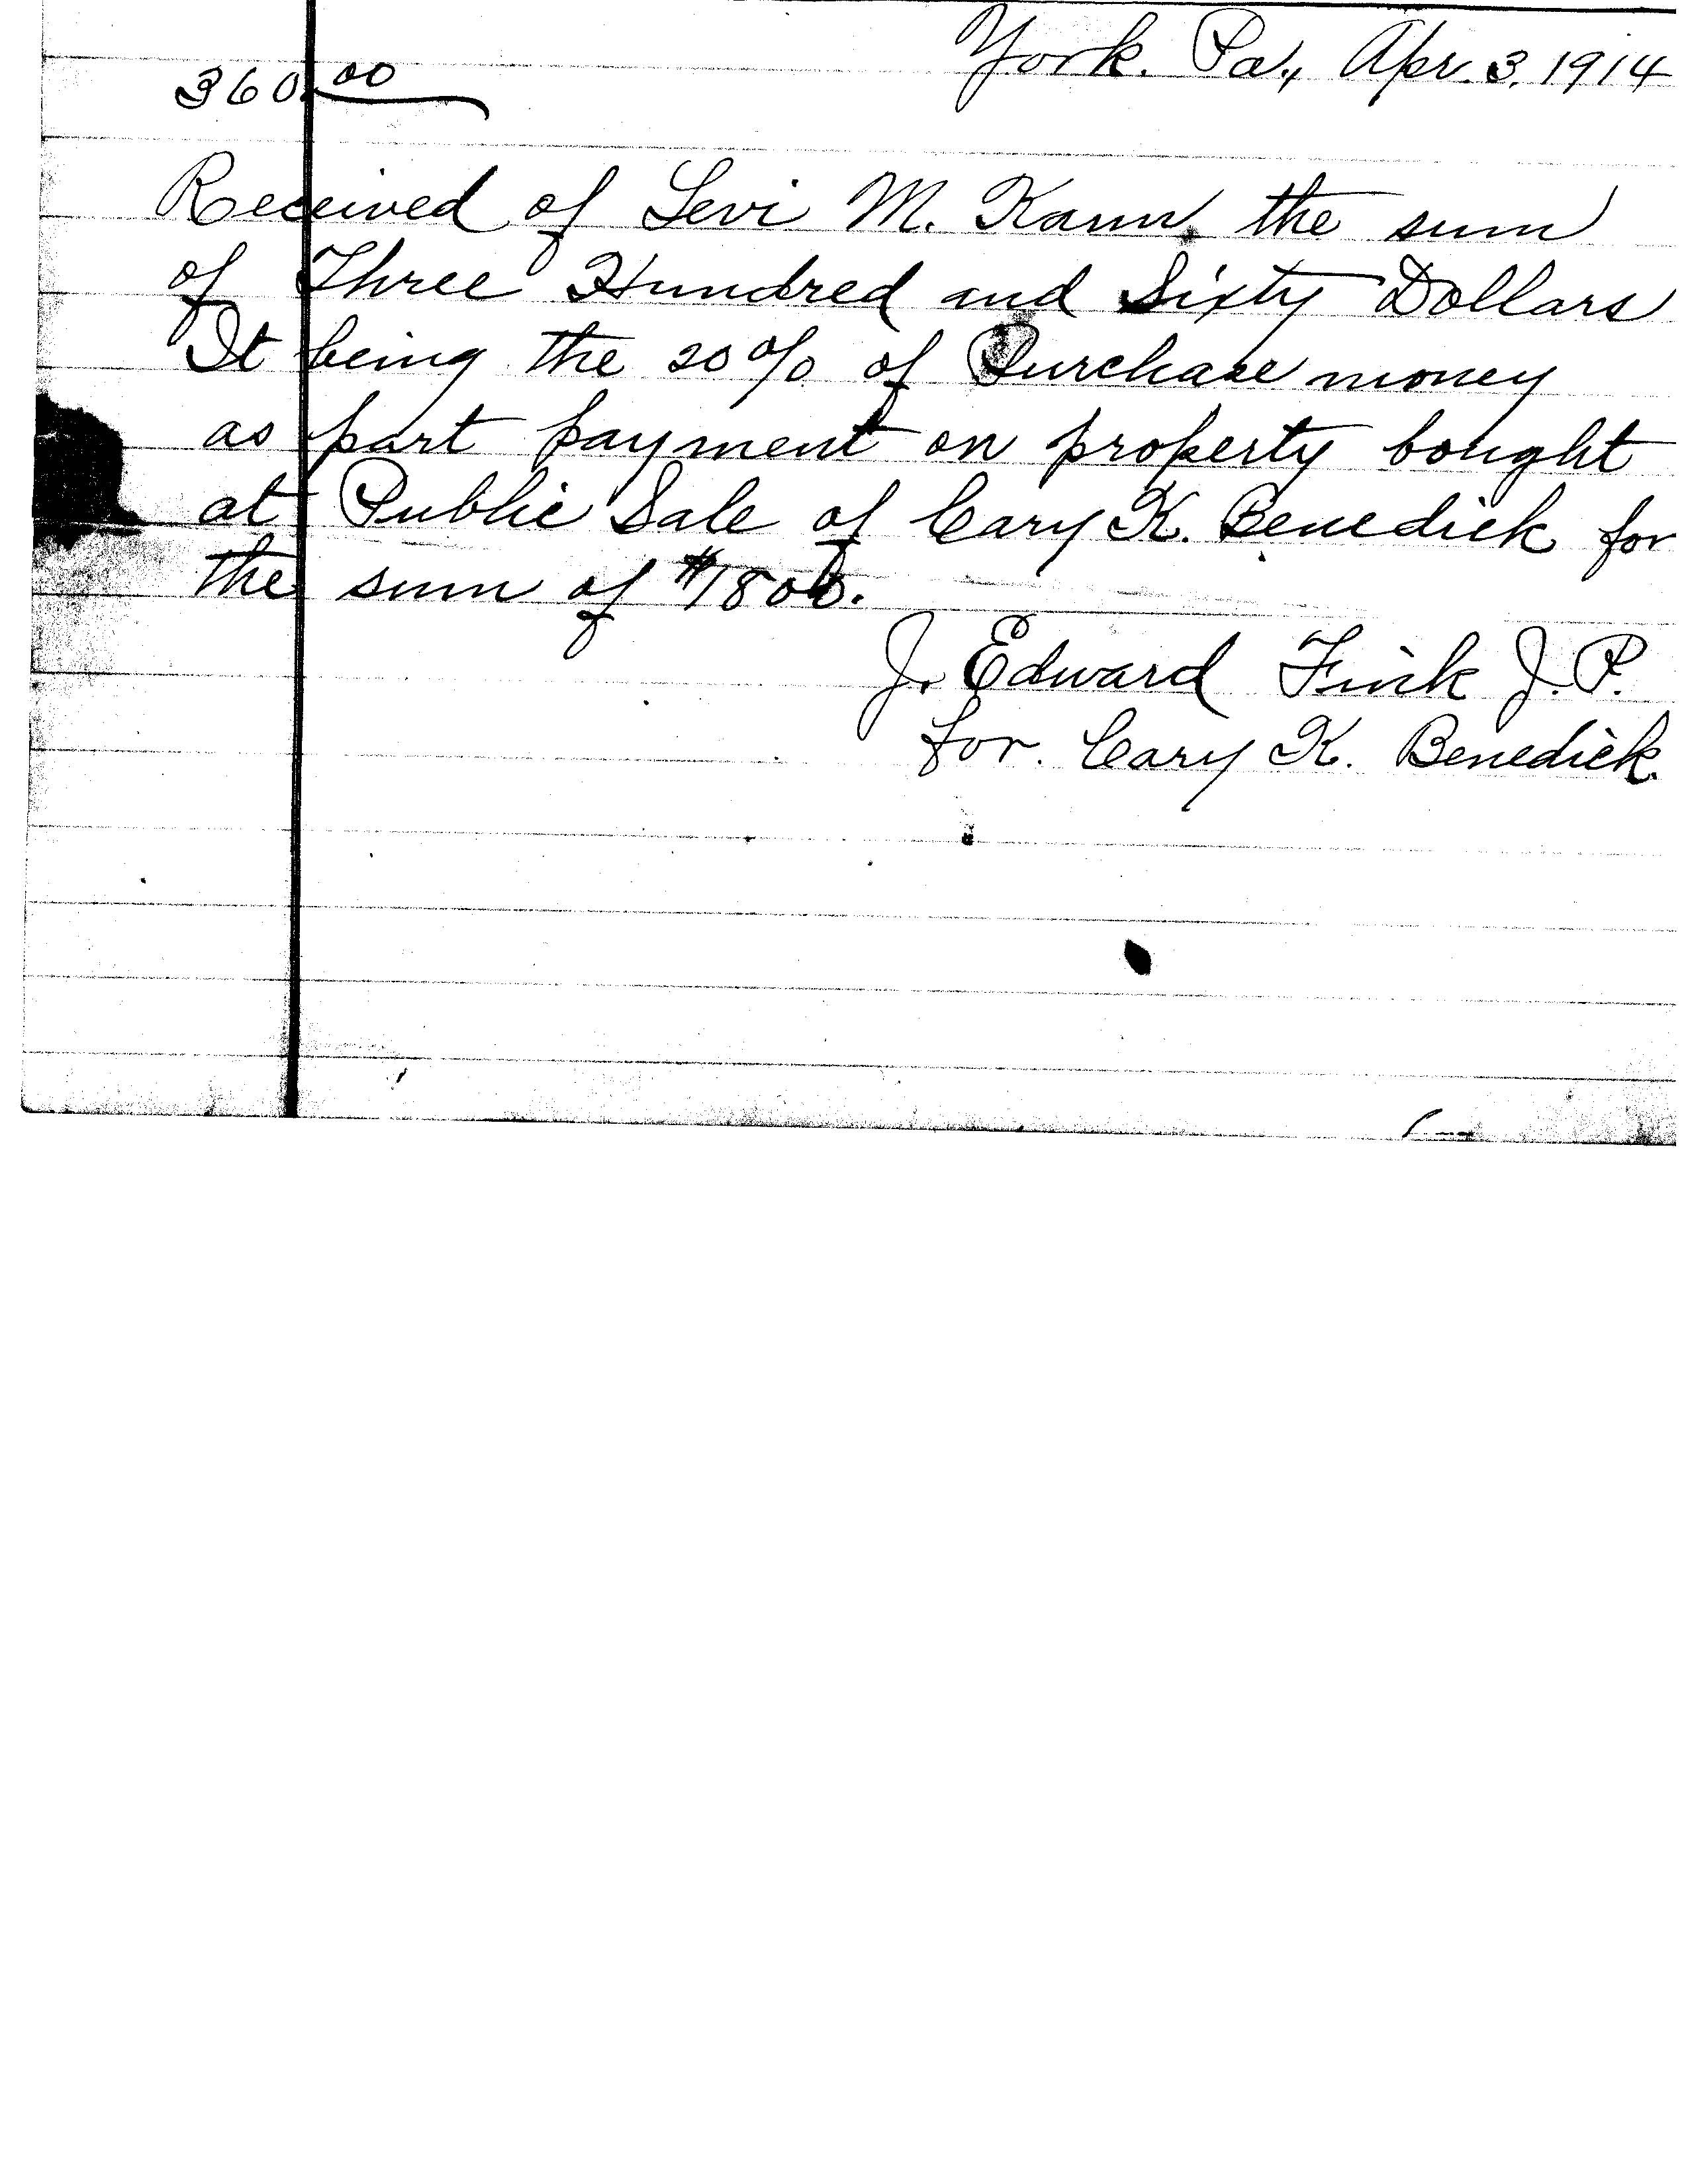 York. Pa., Apr. 3, 1914
360.00
Received of Levi M. Kann, the sum
of Three Hundred and Sixty Dollars
It being the 20% of Purchase money
as part payment on property bought
at Public Sale of Cary K. Benedick for
the sum of $1800.
J. Edward Fink J.P.
for. Cary K. Benedick.